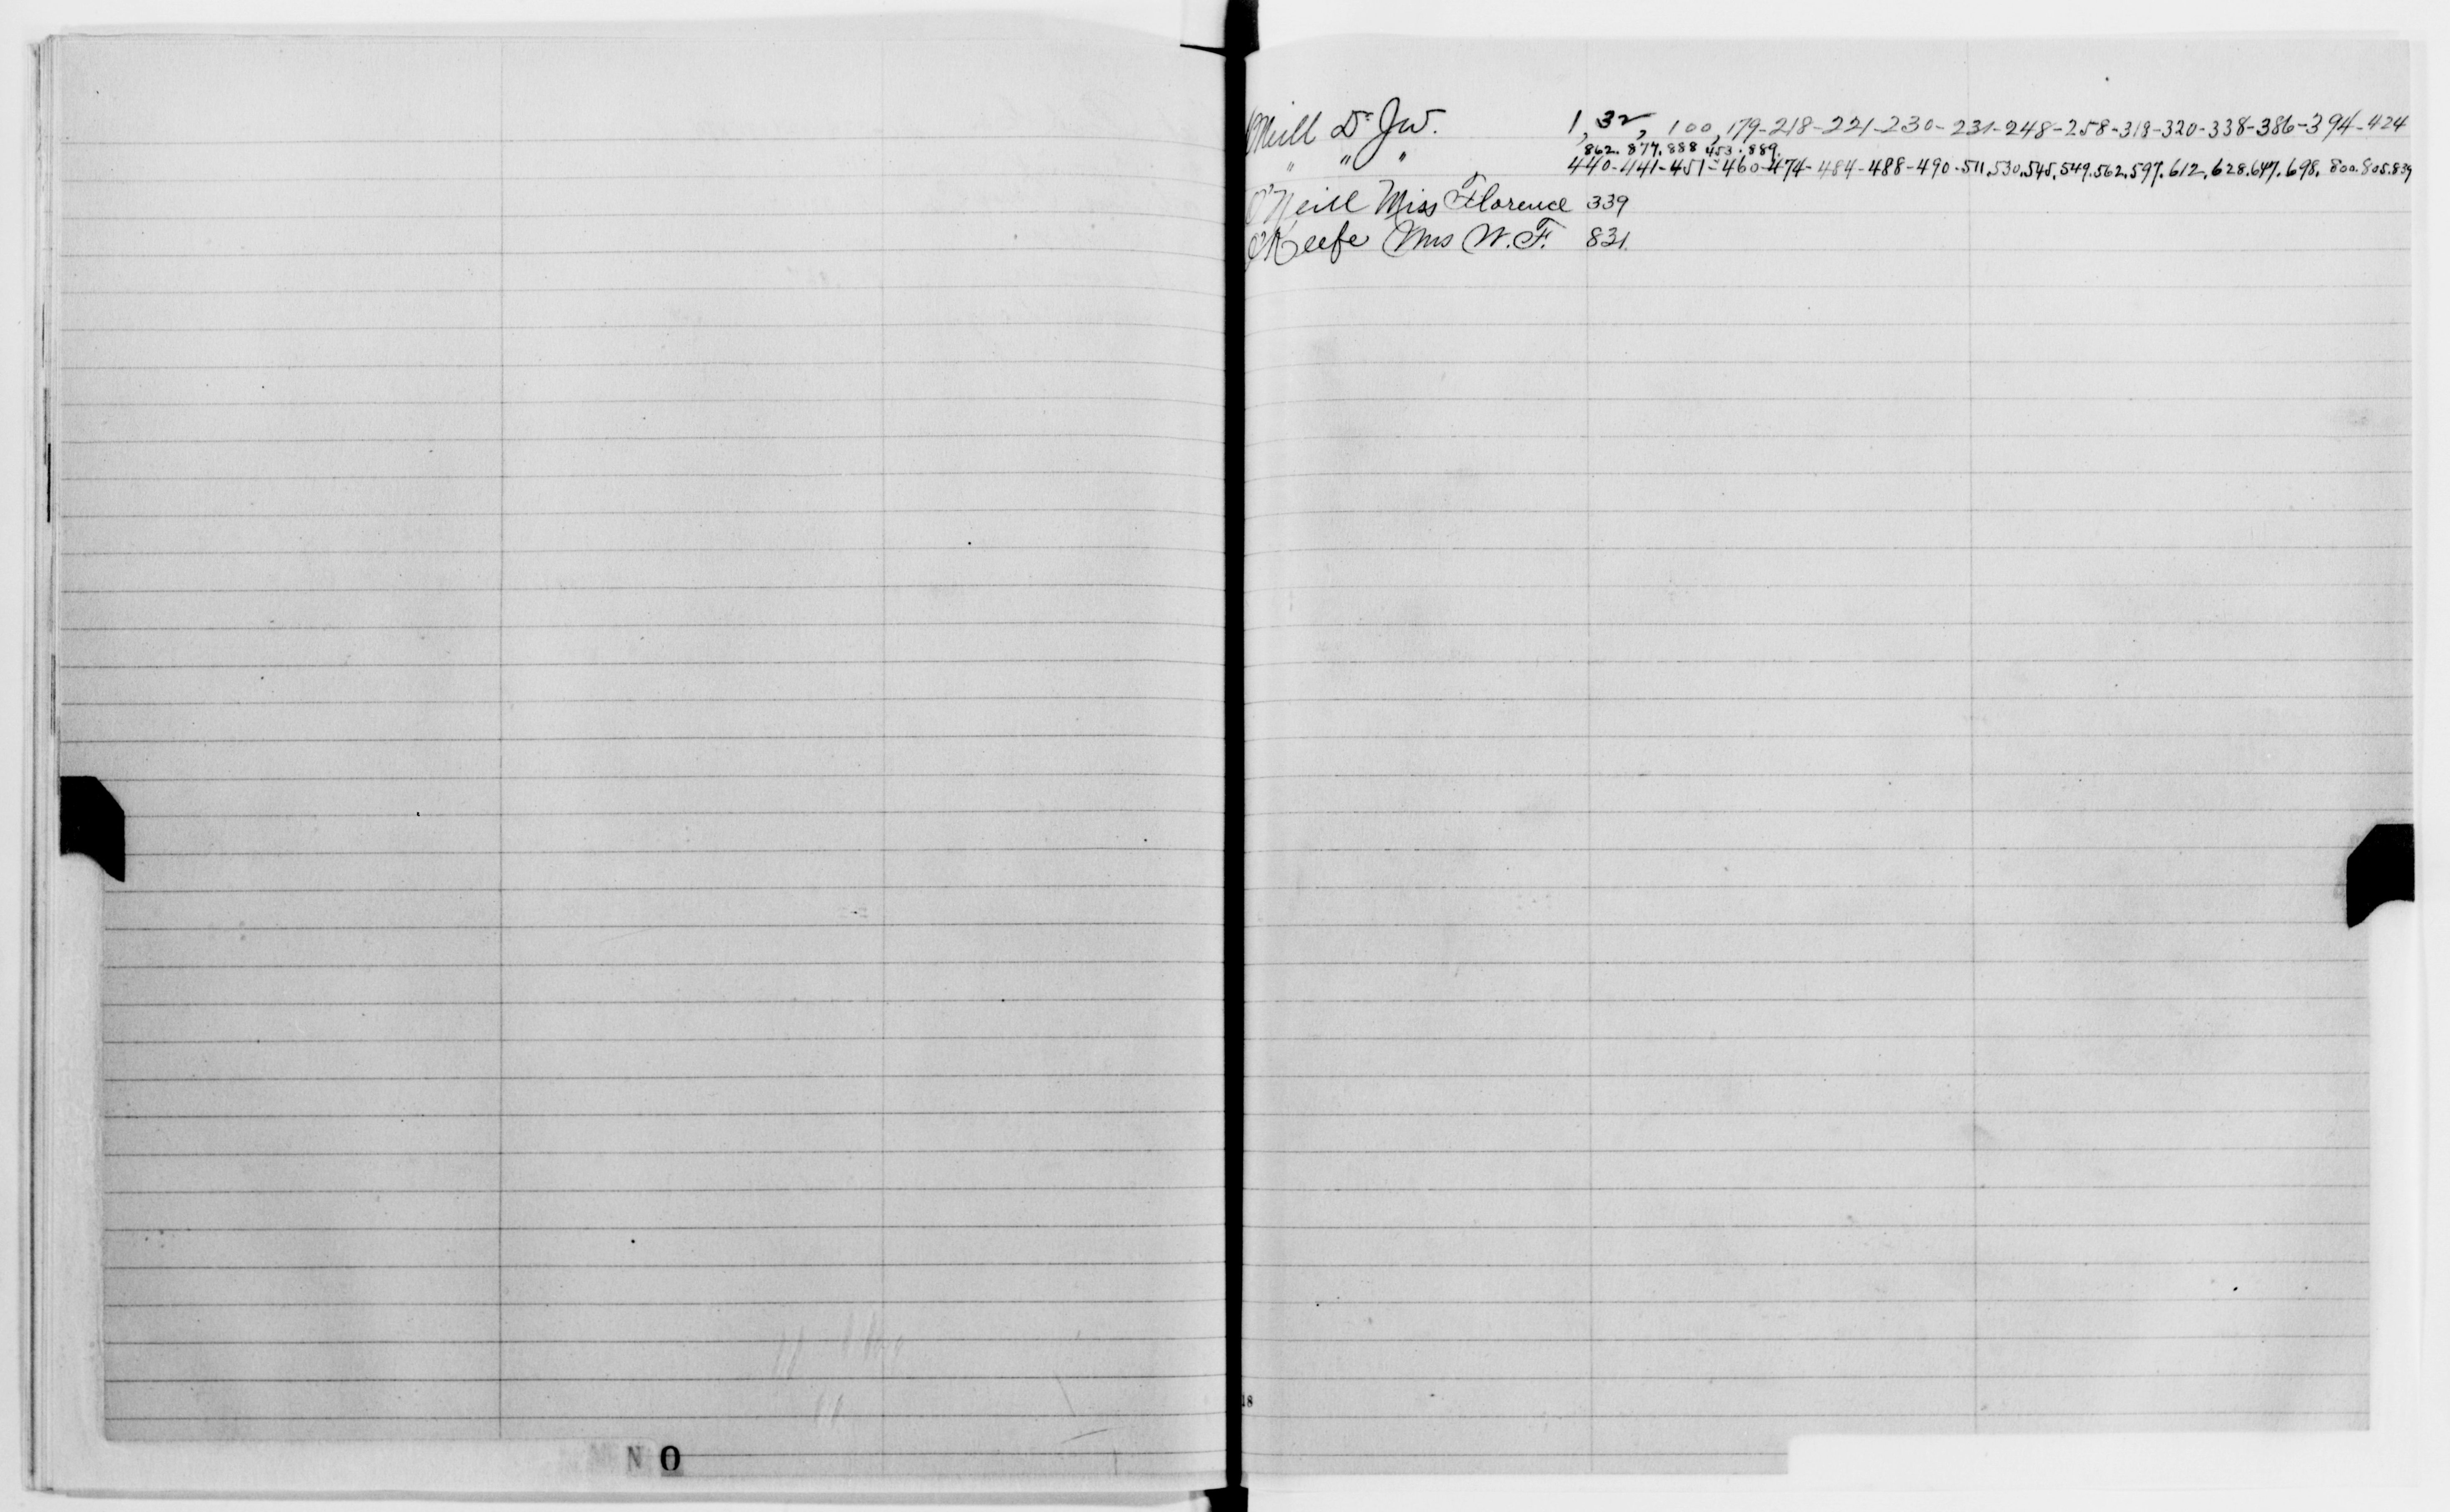 O'Neill Dr. J.W. 1, 32, 100, 179-218-221-230-231-248-258-318-320-338-386-394-424
862. 877. 888 453. 889.
" " " 440-441-451-460-474-484-488-490-511.530.545.549.562.597.612.628.647.698. 800.805.839
O'Neill Miss Florence 339
O'Keefe Mrs W.F. 831.
18
N O